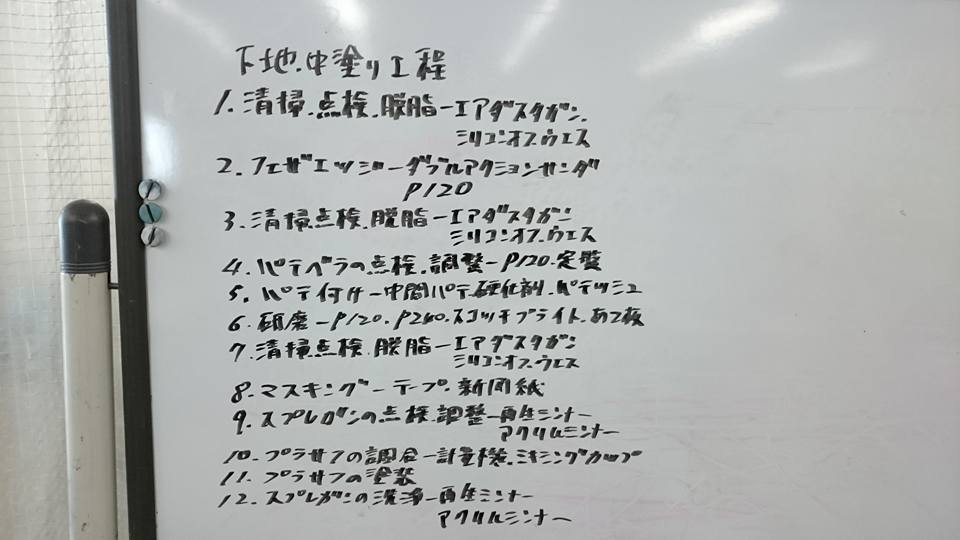 下地.中塗り工程
1. 清掃.点検.脱脂ーエアダスタガン.
シリコンオフ.ウエス
2. フェザエッジーダブルアクションサンダ
P120
3. 清掃点検.脱脂ーエアダスタガン
シリコンオフ.ウエス
4. パテベラの点検.調整ーP120.定盤
5. パテ付けー中間パテ.硬化剤.パテッシュ
6. 研磨ーP120.P240.スコッチブライト.あて板
7. 清掃点検.脱脂ーエアダスタガン
シリコンオフ.ウエス
8. マスキングーテープ.新聞紙
9. スプレガンの点検.調整ー再生シンナー
アクリルシンナー
10. プラサフの調合ー計量機.ミキシングカップ
11. プラサフの塗装
12. スプレガンの洗浄ー再生シンナー
アクリルシンナー